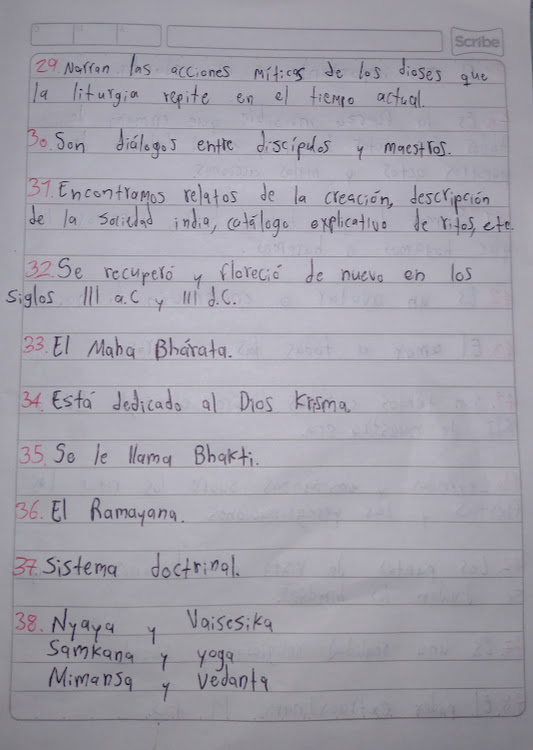 Scribe
29. Narran las acciones míticas de los dioses que
la liturgia repite en el tiempo actual.
30. Son diálogos entre discípulos y maestros.
31. Encontramos relatos de la creación, descripción
de la sociedad india, catálogo explicativo de ritos, etc.
32. Se recuperó y floreció de nuevo en los
siglos III a.C y III d.C.
33. El Maha Bhárata.
34. Está dedicado al Dios Krisma.
35. Se le llama Bhakti.
36. El Ramayana.
37. Sistema doctrinal.
38. Nyaya y Vaisesika
Samkana y yoga
Mimansa y vedanta